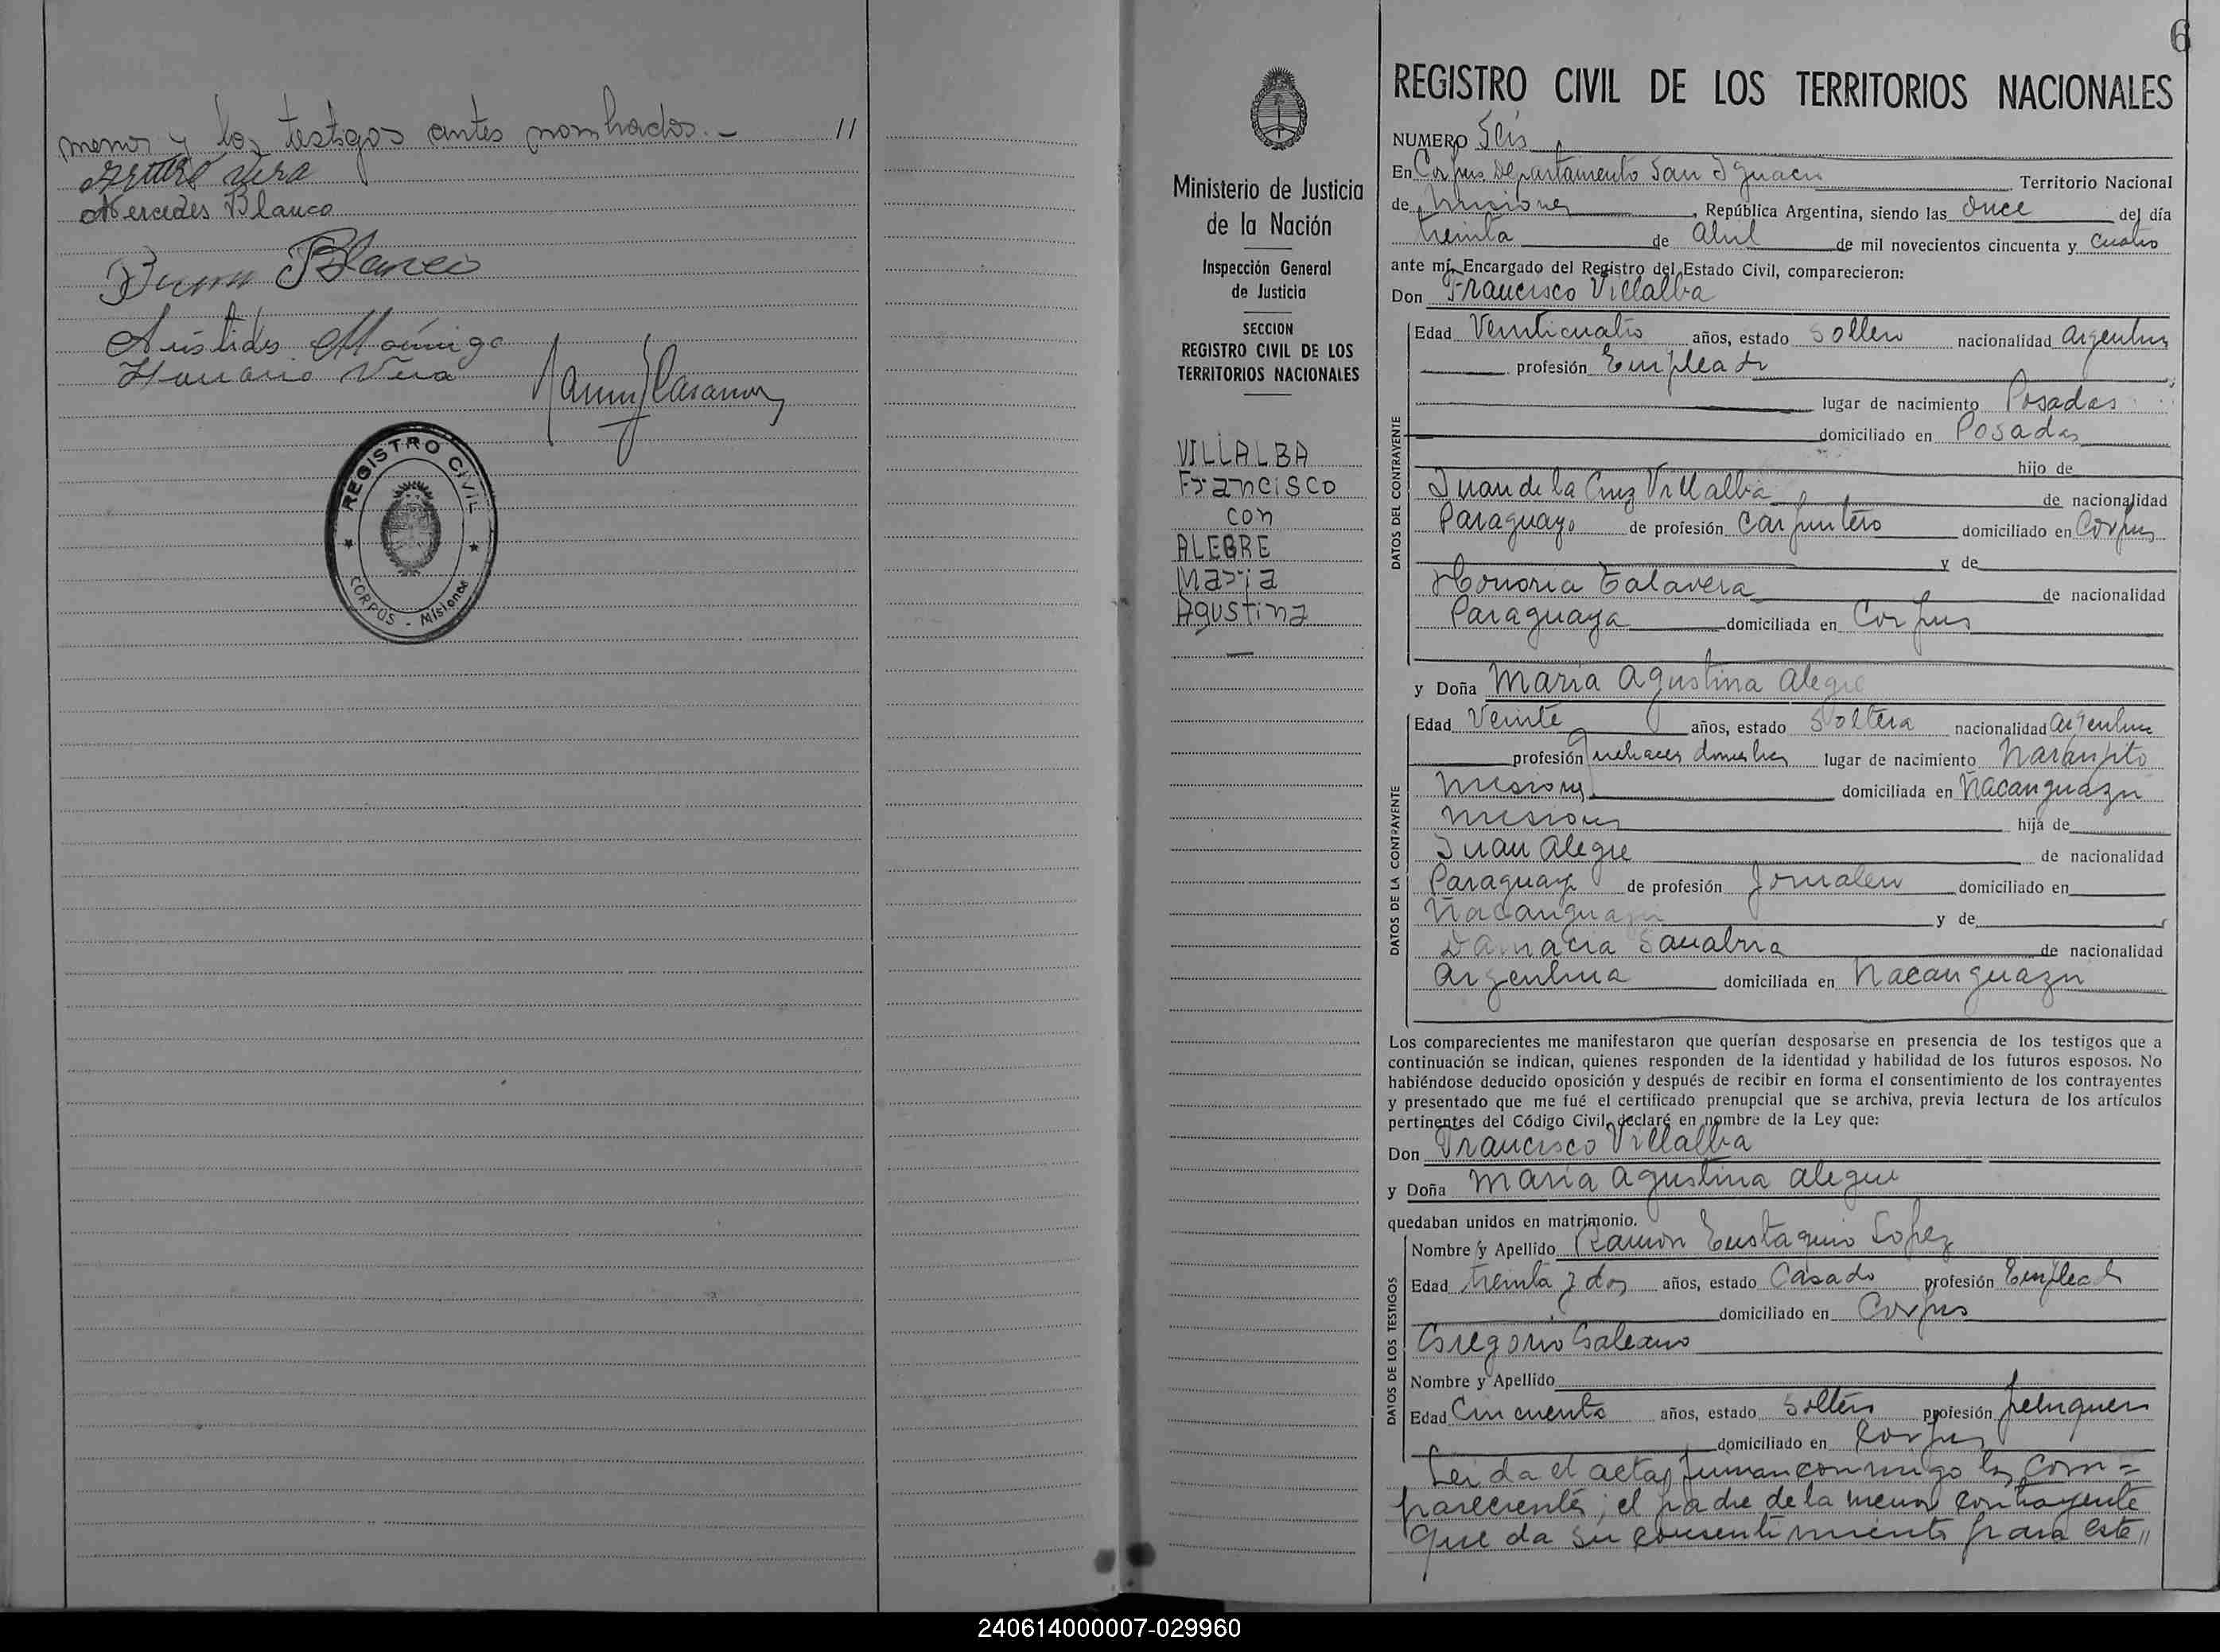 menor y los testigos antes nombrados.-
Arturo Vera
Mercedes Blanco
Blanco
Aristides
Vera
REGISTRO CIVIL
CORPUS - Misiones
6
REGISTRO CIVIL DE LOS TERRITORIOS NACIONALES
Ministerio de Justicia
de la Nación
Inspección General
de Justicia
SECCION
REGISTRO CIVIL DE LOS
TERRITORIOS NACIONALES
VILLALBA
Francisco
con
ALEGRE
Maria
Agustina
NUMERO Seis
En Corpus Departamento San Ignacio Territorio Nacional
de Misiones, República Argentina, siendo las once del día
treinta de abril de mil novecientos cincuenta y cuatro
ante mí, Encargado del Registro del Estado Civil, comparecieron:
Don Francisco Villalba
DATOS DEL CONTRAYENTE
Edad Veinticuatro años, estado soltero nacionalidad argentino
profesión Empleado
lugar de nacimiento Posadas
domiciliado en Posadas
hijo de
Juan de la Cruz Villalba de nacionalidad
Paraguayo de profesión carpintero domiciliado en Corpus
y de
Honoria Talavera de nacionalidad
Paraguaya domiciliada en Corpus
y Doña Maria Agustina Alegre
DATOS DE LA CONTRAYENTE
Edad Veinte años, estado Soltera nacionalidad argentina
profesión quehaceres domesticos lugar de nacimiento Naranjito
Misiones domiciliada en Ñacanguazu
Misiones hija de
Juan Alegre de nacionalidad
Paraguayo de profesión Jornalero domiciliado en
Ñacanguazu y de
Damacia Sanabria de nacionalidad
argentina domiciliada en Ñacanguazu
Los comparecientes me manifestaron que querían desposarse en presencia de los testigos que a
continuación se indican, quienes responden de la identidad y habilidad de los futuros esposos. No
habiéndose deducido oposición y después de recibir en forma el consentimiento de los contrayentes
y presentado que me fué el certificado prenupcial que se archiva, previa lectura de los artículos
pertinentes del Código Civil, declaré en nombre de la Ley que:
Don Francisco Villalba
y Doña Maria Agustina Alegre
quedaban unidos en matrimonio.
DATOS DE LOS TESTIGOS
Nombre y Apellido Ramon Eustaquio Lopez
Edad treinta y dos años, estado Casado profesión Empleado
domiciliado en Corpus
Gregorio Galeano
Nombre y Apellido
Edad Cincuenta años, estado Soltero profesión peluquero
domiciliado en Corpus
Leida el acta, firman conmigo los com=
parecientes; el padre de la menor contrayente
que da su consentimiento para este //
240614000007-029960